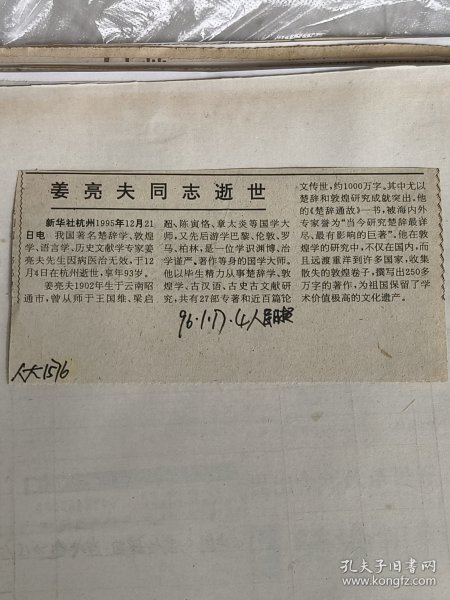 姜亮夫同志逝世
新华社杭州1995年12月21
日电 我国著名楚辞学、敦煌
学、语言学、历史文献学专家姜
亮夫先生因病医治无效,于12
月4日在杭州逝世,享年93岁。
姜亮夫1902年生于云南昭
通市,曾从师于王国维、梁启
超、陈寅恪、章太炎等国学大
师,又先后游学巴黎、伦敦、罗
马、柏林,是一位学识渊博、治
学谨严。著作等身的国学大师。
他以毕生精力从事楚辞学、敦煌
学、古汉语、古史古文献研
究,共有27部专著和近百篇论
文传世,约1000万字。其中尤以
楚辞和敦煌研究成就突出。他
的《楚辞通故》一书,被海内外
专家誉为“当今研究楚辞最详
尽、最有影响的巨著”。他在敦
煌学的研究中,不仅在国内,而
且远渡重洋到许多国家,收集
散失的敦煌卷子,撰写出250多
万字的著作,为祖国保留了学
术价值极高的文化遗产。
96.1.17.4人民日报
人大1576
孔夫子旧书网
www.kongfz.com